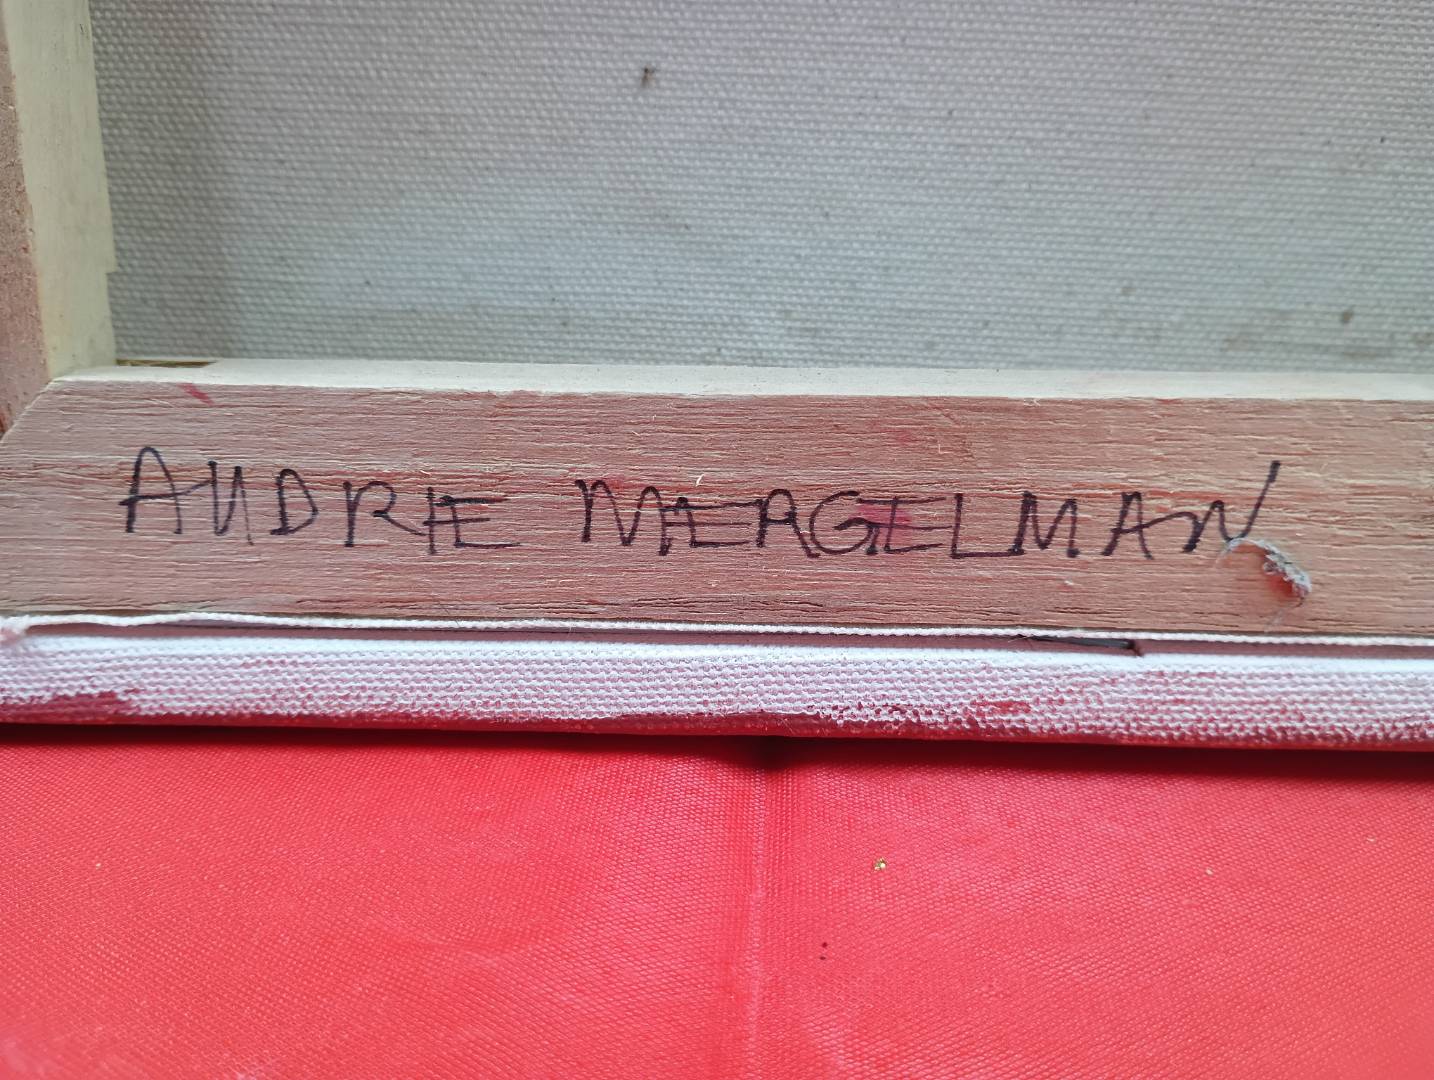 ANDRE MERGELMAN